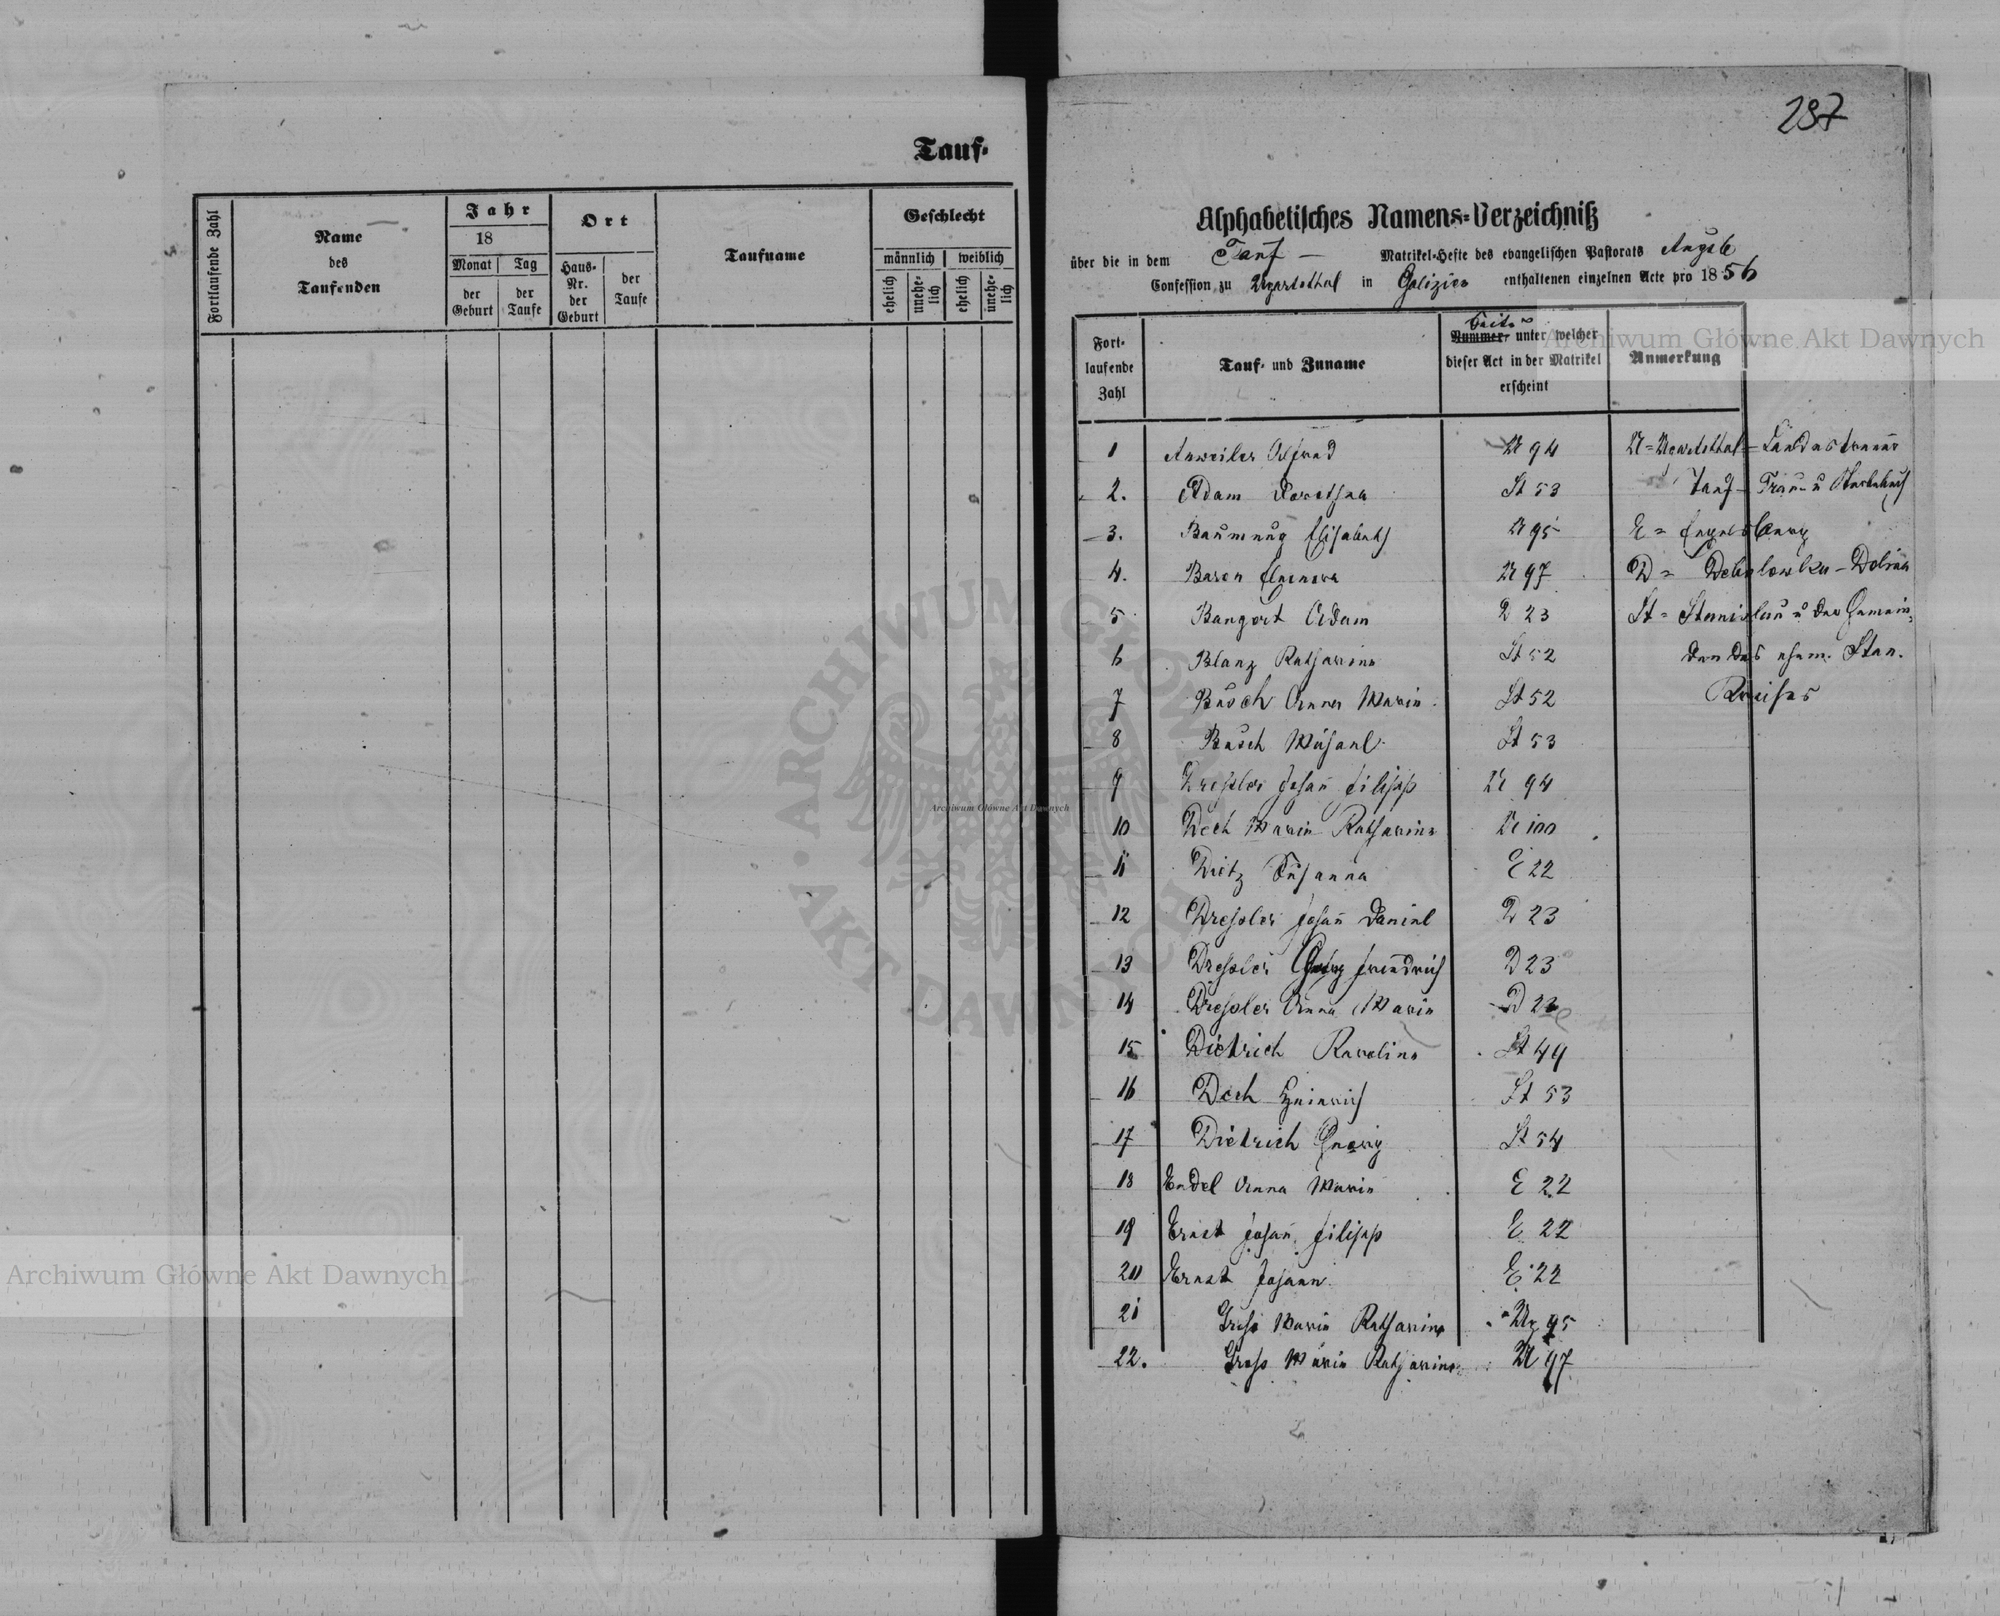 Tauf-
Fortlaufende Zahl
Name
des
Taufenden
Jahr
18
Monat
Tag
der
Geburt
der
Taufe
Ort
Haus-
Nr.
der
Geburt
der
Taufe
Taufname
Geschlecht
männlich
weiblich
ehelich
unehe-
lich
ehelich
unehe-
lich
287
Alphabetisches Namens-Verzeichniß
über die in dem Tauf — Matrikel-Hefte des evangelischen Pastorats Augsb
Confession zu Ugartsthal in Galizien enthaltenen einzelnen Acte pro 1856
Fort-
laufende
Zahl
Tauf- und Zuname
Seite
Nummer, unter welcher
dieser Act in der Matrikel
erscheint
Anmerkung
1 Anweiler Alfred U 94 U = Ugartsthal = Landestreuer
2. Adam Dorothea St 53 Tauf- Trau- u Sterbebuch
3. Baumung Elisabeth U 95 E = Engelsberg
4. Baron Eleonora U 97 D = Debolowka - Dolina
5 Bangert Adam D 23 St = Stanislau u der Gemein-
6 Blanz Katharina St 52 den des ehem. Stan.
7 Busch Anna Maria St 52 Kreises
8 Busch Michael St 53
9 Dressler Johañ Filipp U 94
10 Dech Maria Katharina U 100
11 Dietz Susanna E 22
12 Dressler Johañ Daniel D 23
13 Dressler Georg Friedrich D 23
14 Dressler Anna Maria D 23
15 Dietrich Karolina St 49
16 Dech Heinrich St 53
17 Dietrich Georg St 54
18 Endel Anna Maria E 22
19 Ernst Johañ Filipp E 22
20 Ernst Johann E 22
21 Gross Maria Katharina U 95
22. Gross Maria Katharina U 97
Archiwum Główne Akt Dawnych
Archiwum Główne Akt Dawnych
Archiwum Główne Akt Dawnych
ARCHIWUM GŁÓWNE AKT DAWNYCH